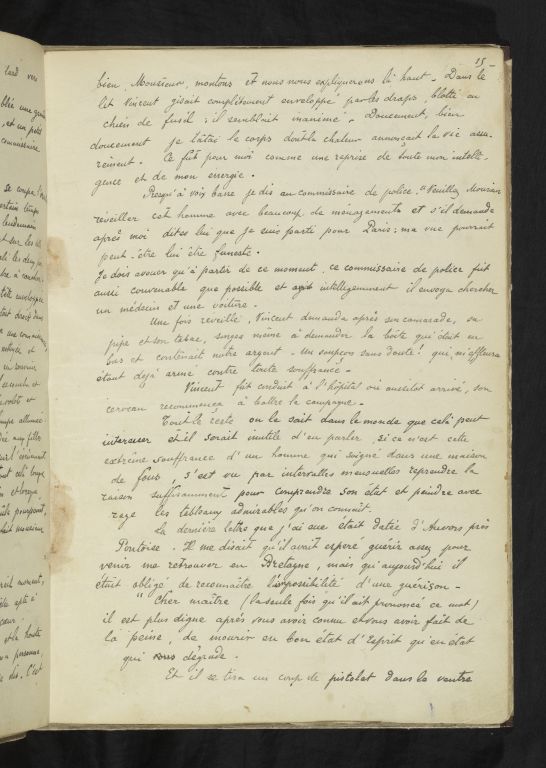 15
bien, Monsieur, montons et nous nous expliquerons là haut. Dans le
lit Vincent gisait complètement enveloppé par les draps, blotti en
chien de fusil; il semblait inanimé. Doucement, bien
doucement je tâtai le corps dont la chaleur annonçait la vie assu-
rément. Ce fut pour moi comme une reprise de toute mon intelli-
gence et de mon énergie.
Presqu'à voix basse je dis au commissaire de police. "Veuillez Monsieur
réveiller cet homme avec beaucoup de ménagements et s'il demande
après moi dites lui que je suis parti pour Paris: ma vue pourrait
peut-être lui être funeste.
Je dois avouer qu'à partir de ce moment, ce commissaire de police fut
aussi convenable que possible et intelligemment il envoya chercher
un médecin et une voiture.
Une fois réveillé, Vincent demanda après son camarade, sa
pipe et son tabac, songea même à demander la boîte qui était en
bas et contenait notre argent. Un soupçon sans doute! qui m'effleura
étant déjà armé contre toute souffrance.
Vincent fut conduit à l'hôpital où aussitôt arrivé, son
cerveau recommença à battre la campagne.
Tout le reste on le sait dans le monde que celà peut
intéresser et il serait inutile d'en parler, si ce n'est cette
extrême souffrance d'un homme qui soigné dans une maison
de fous, s'est vu par intervalles mensuelles reprendre la
raison suffisamment pour comprendre son état et peindre avec
rage les tableaux admirables qu'on connait.
La dernière lettre que j'ai eue était datée d'Auvers près
Pontoise. Il me disait qu'il avait espéré guérir assez pour
venir me retrouver en Bretagne, mais qu'aujourd'hui il
était obligé de reconnaître l'impossibilité d'une guérison.
"Cher maître (la seule fois qu'il ait prononcé ce mot)
il est plus digne après vous avoir connu et vous avoir fait de
la peine, de mourir en bon état d'esprit qu'en état
qui dégrade.
Et il se tira un coup de pistolet dans le ventre